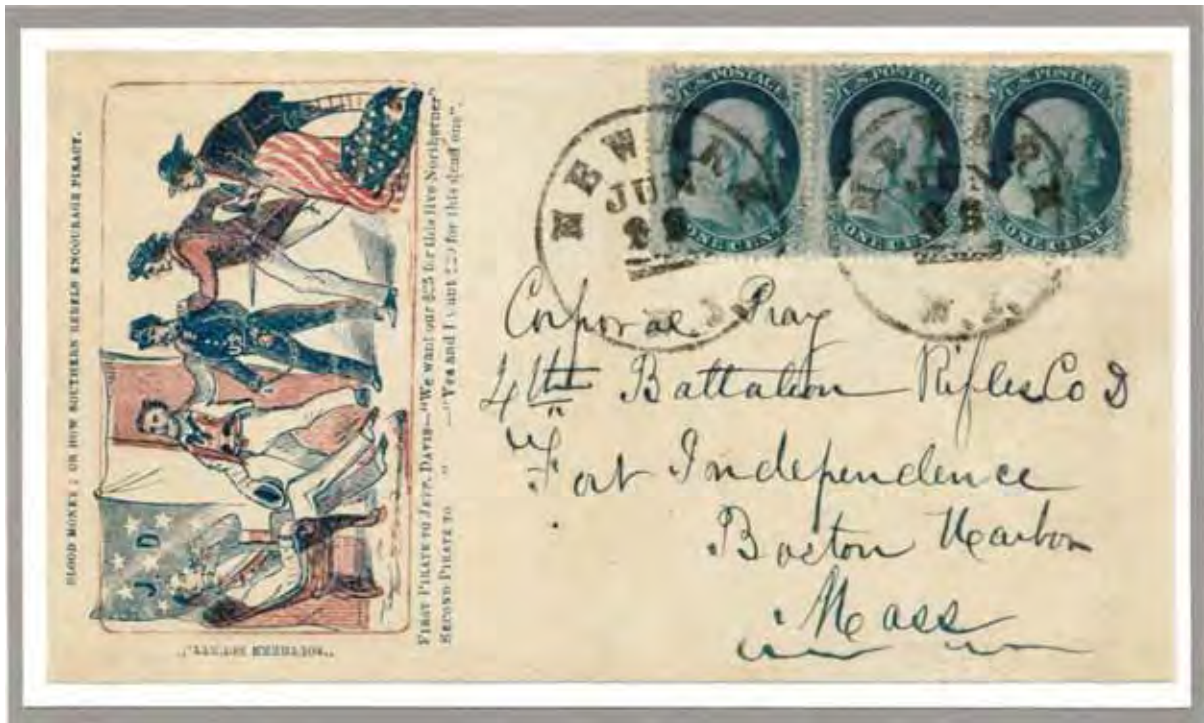 BLOOD MONEY; OR HOW SOUTHERN REBELS ENCOURAGE PIRACY.
J D
US
FIRST PIRATE TO JEFF. DAVIS—"We want our $25 for this live Northerner"
SECOND PIRATE TO " —"Yes and I want $20 for this dead one".
"SOUTHERN
U.S. POSTAGE
ONE CENT
U.S. POSTAGE
ONE CENT
U.S. POSTAGE
ONE CENT
NEWARK
N.J.
NEWARK
N.J.
Corporal Pray
4th Battalion Rifles Co D
Fort Independence
Boston Harbor
Mass